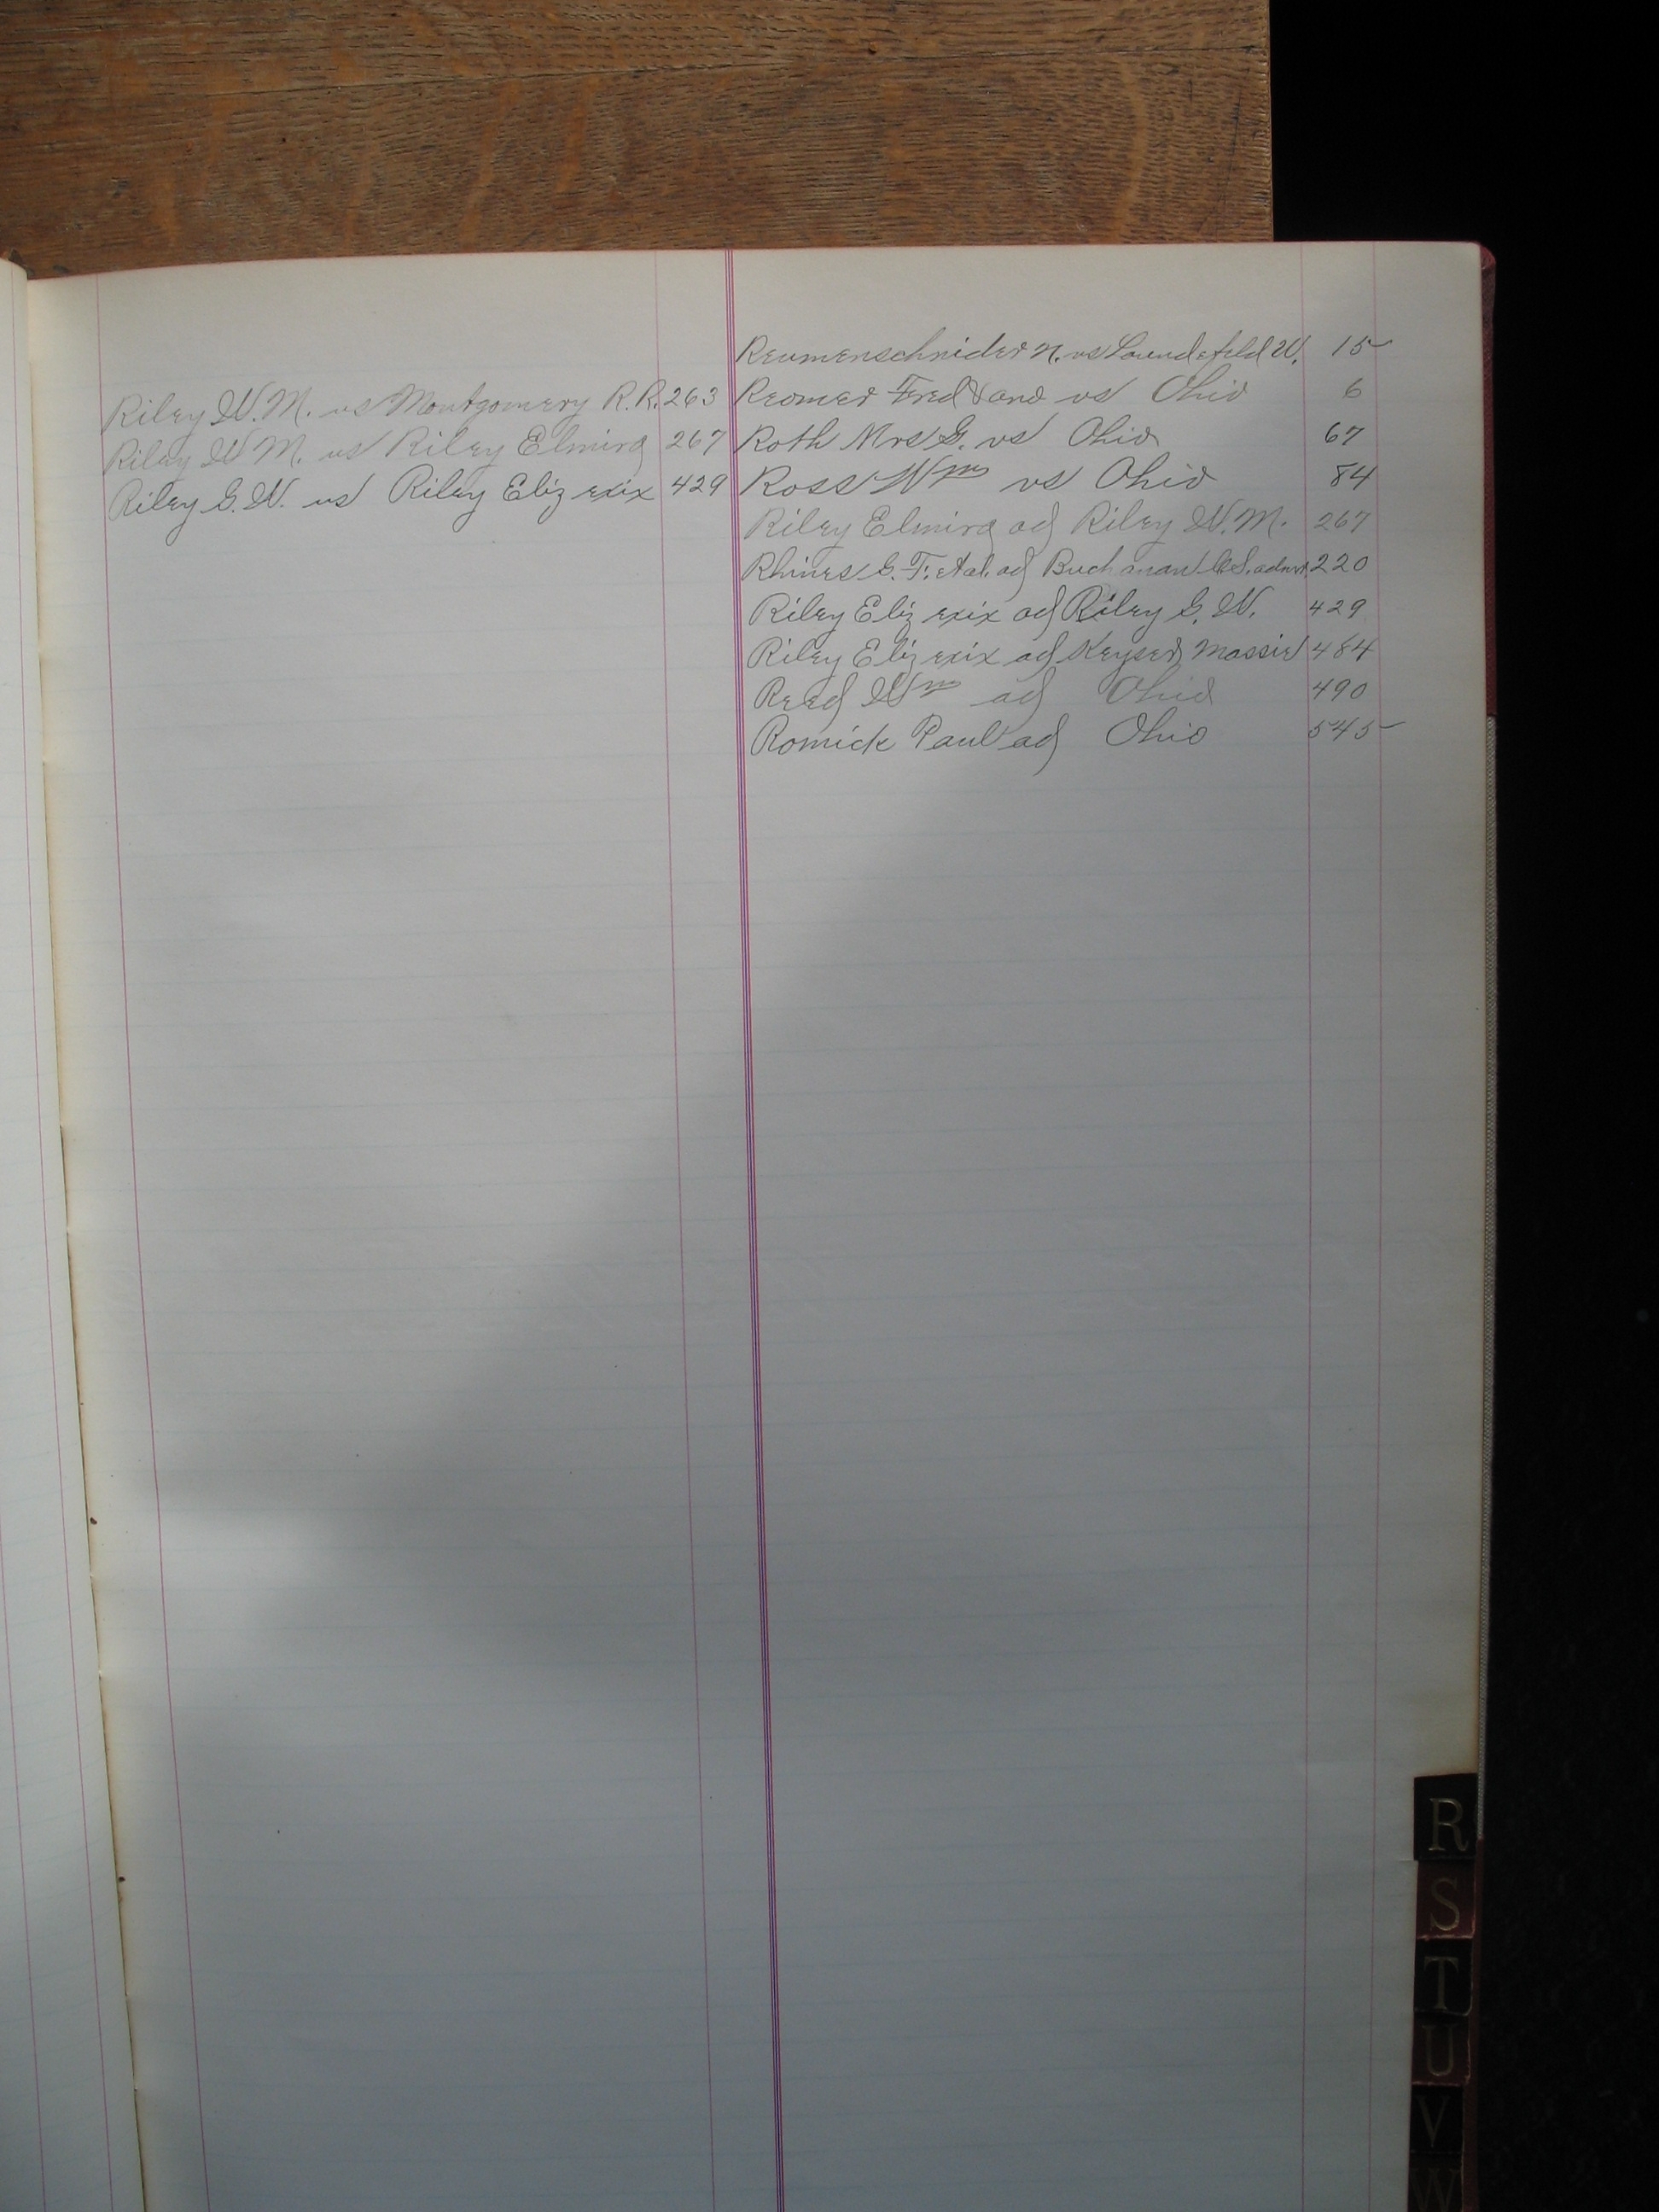 Riley W.M. vs Montgomery R.R. 263
Riley W M. vs Riley Elmira 267
Riley G.W. vs Riley Eliz exix 429
Reumenschnider N. vs W. 15
Reomer Fred & ano vs Ohio 6
Roth Mrs G. vs Ohio 67
Ross Wm vs Ohio 84
Riley Elmira ad Riley W.M. 267
Rhines G. F. et al. ad Buchanan 220
Riley Eliz exix ad Riley G. W. 429
Riley Eliz exix ad Keyser Massie 484
Reed Wm ad Ohio 490
Romick Paul ad Ohio 545
R
S
T
U
V
W